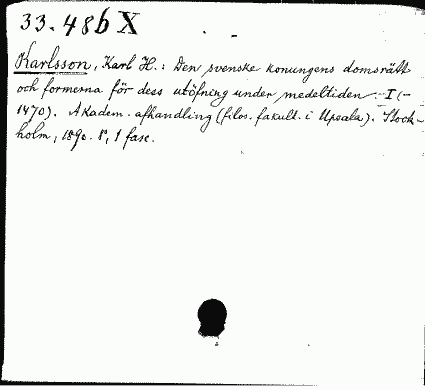 33.48b X
Karlsson, Karl H.: Den svenske konungens domsrätt
och formerna för dess utöfning under medeltiden. I (-
1470). Akadem. afhandling (filos. fakult. i Upsala). Stock-
holm, 1890. 8°, 1 fasc.